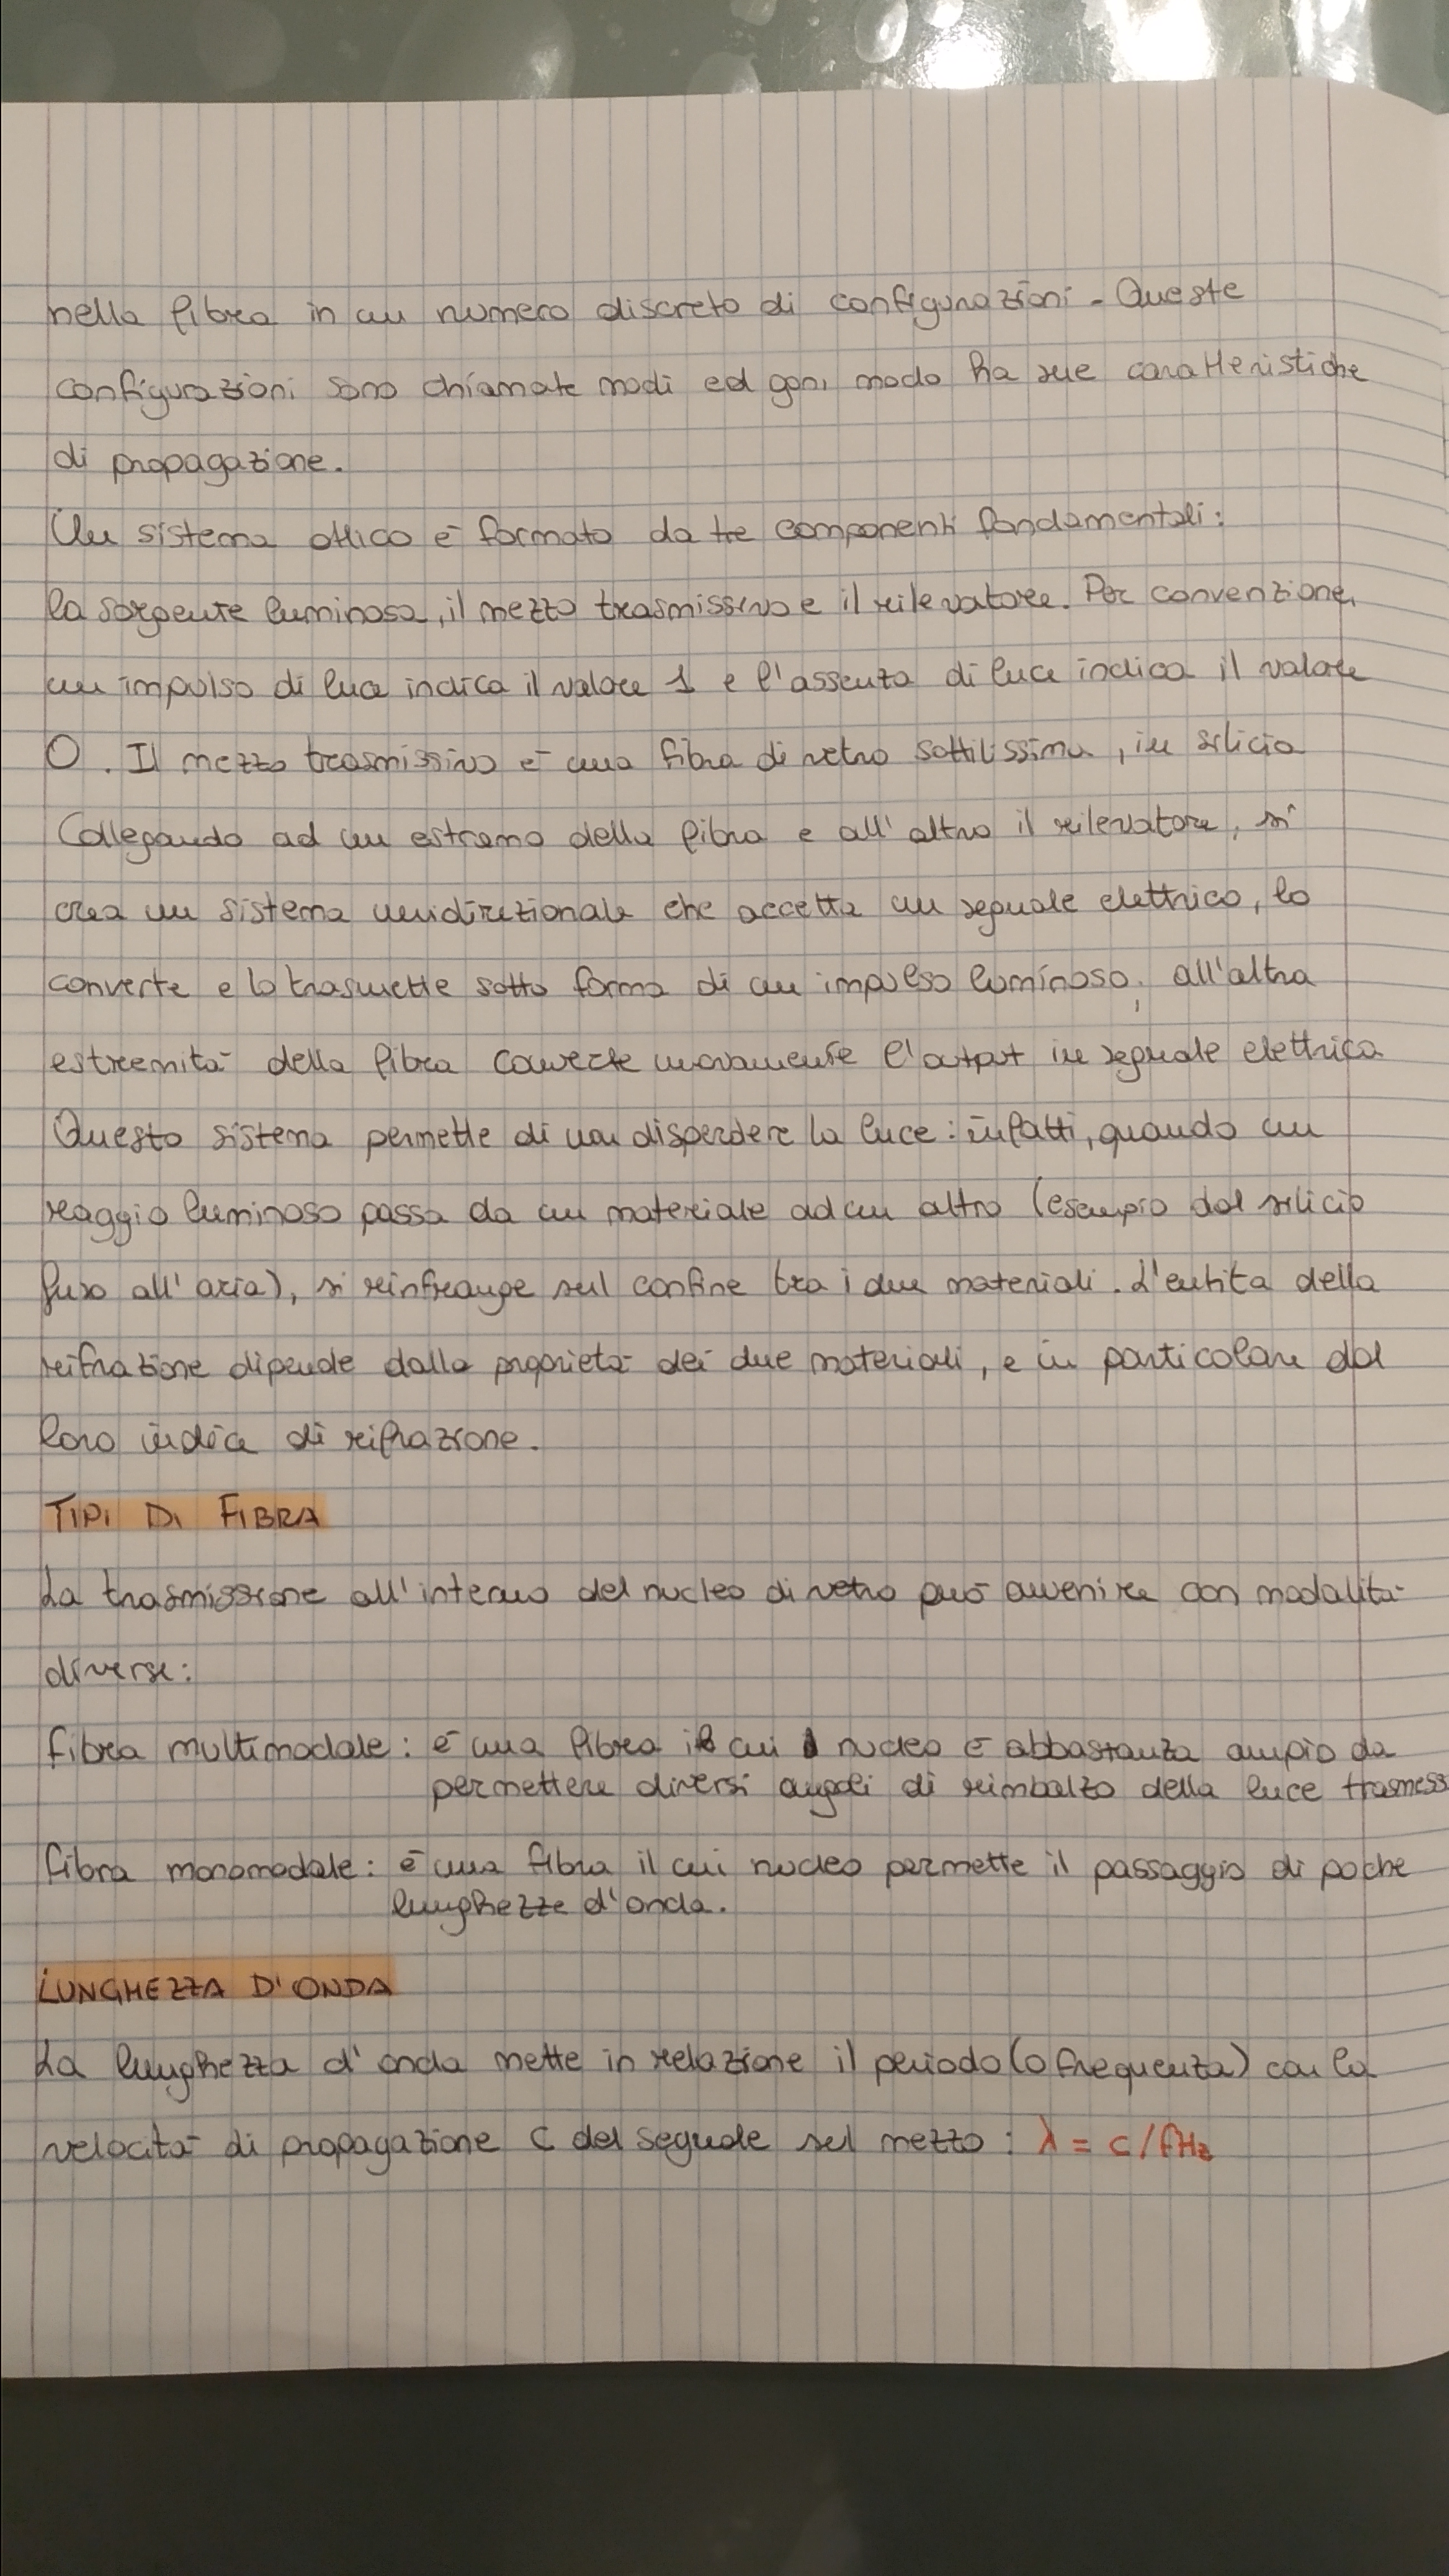 nella fibra in un numero discreto di configurazioni. Queste
configurazioni sono chiamate modi ed ogni modo ha sue caratteristiche
di propagazione.
Un sistema ottico è formato da tre componenti fondamentali:
la sorgente luminosa, il mezzo trasmissivo e il rilevatore. Per convenzione,
un impulso di luce indica il valore 1 e l'assenza di luce indica il valore
0. Il mezzo trasmissivo è una fibra di vetro sottilissima, in silicio
Collegando ad un estremo della fibra e all'altro il rilevatore, si
crea un sistema unidirezionale che accetta un segnale elettrico, lo
converte e lo trasmette sotto forma di un impulso luminoso; all'altra
estremità della fibra converte nuovamente l'output in segnale elettrico
Questo sistema permette di non disperdere la luce: infatti, quando un
raggio luminoso passa da un materiale ad un altro (esempio dal silicio
fuso all'aria), si rinfrange sul confine tra i due materiali. L'entita della
rifrazione dipende dalla proprietà dei due materiali, e in particolare dal
loro indice di rifrazione.
TIPI DI FIBRA
La trasmissione all'interno del nucleo di vetro può avvenire con modalità
diverse:
fibra multimodale: è una fibra il cui nucleo è abbastanza ampio da
permettere diversi angoli di rimbalzo della luce trasmess
fibra monomodale: è una fibra il cui nucleo permette il passaggio di poche
lunghezze d'onda.
LUNGHEZZA D'ONDA
La lunghezza d'onda mette in relazione il periodo (o frequenza) con la
velocità di propagazione C del segnale sul mezzo: λ = c/fHz